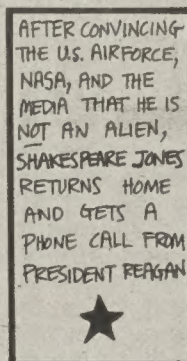 AFTER CONVINCING
THE U.S. AIRFORCE,
NASA, AND THE
MEDIA THAT HE IS
NOT AN ALIEN,
SHAKESPEARE JONES
RETURNS HOME
AND GETS A
PHONE CALL FROM
PRESIDENT REAGAN